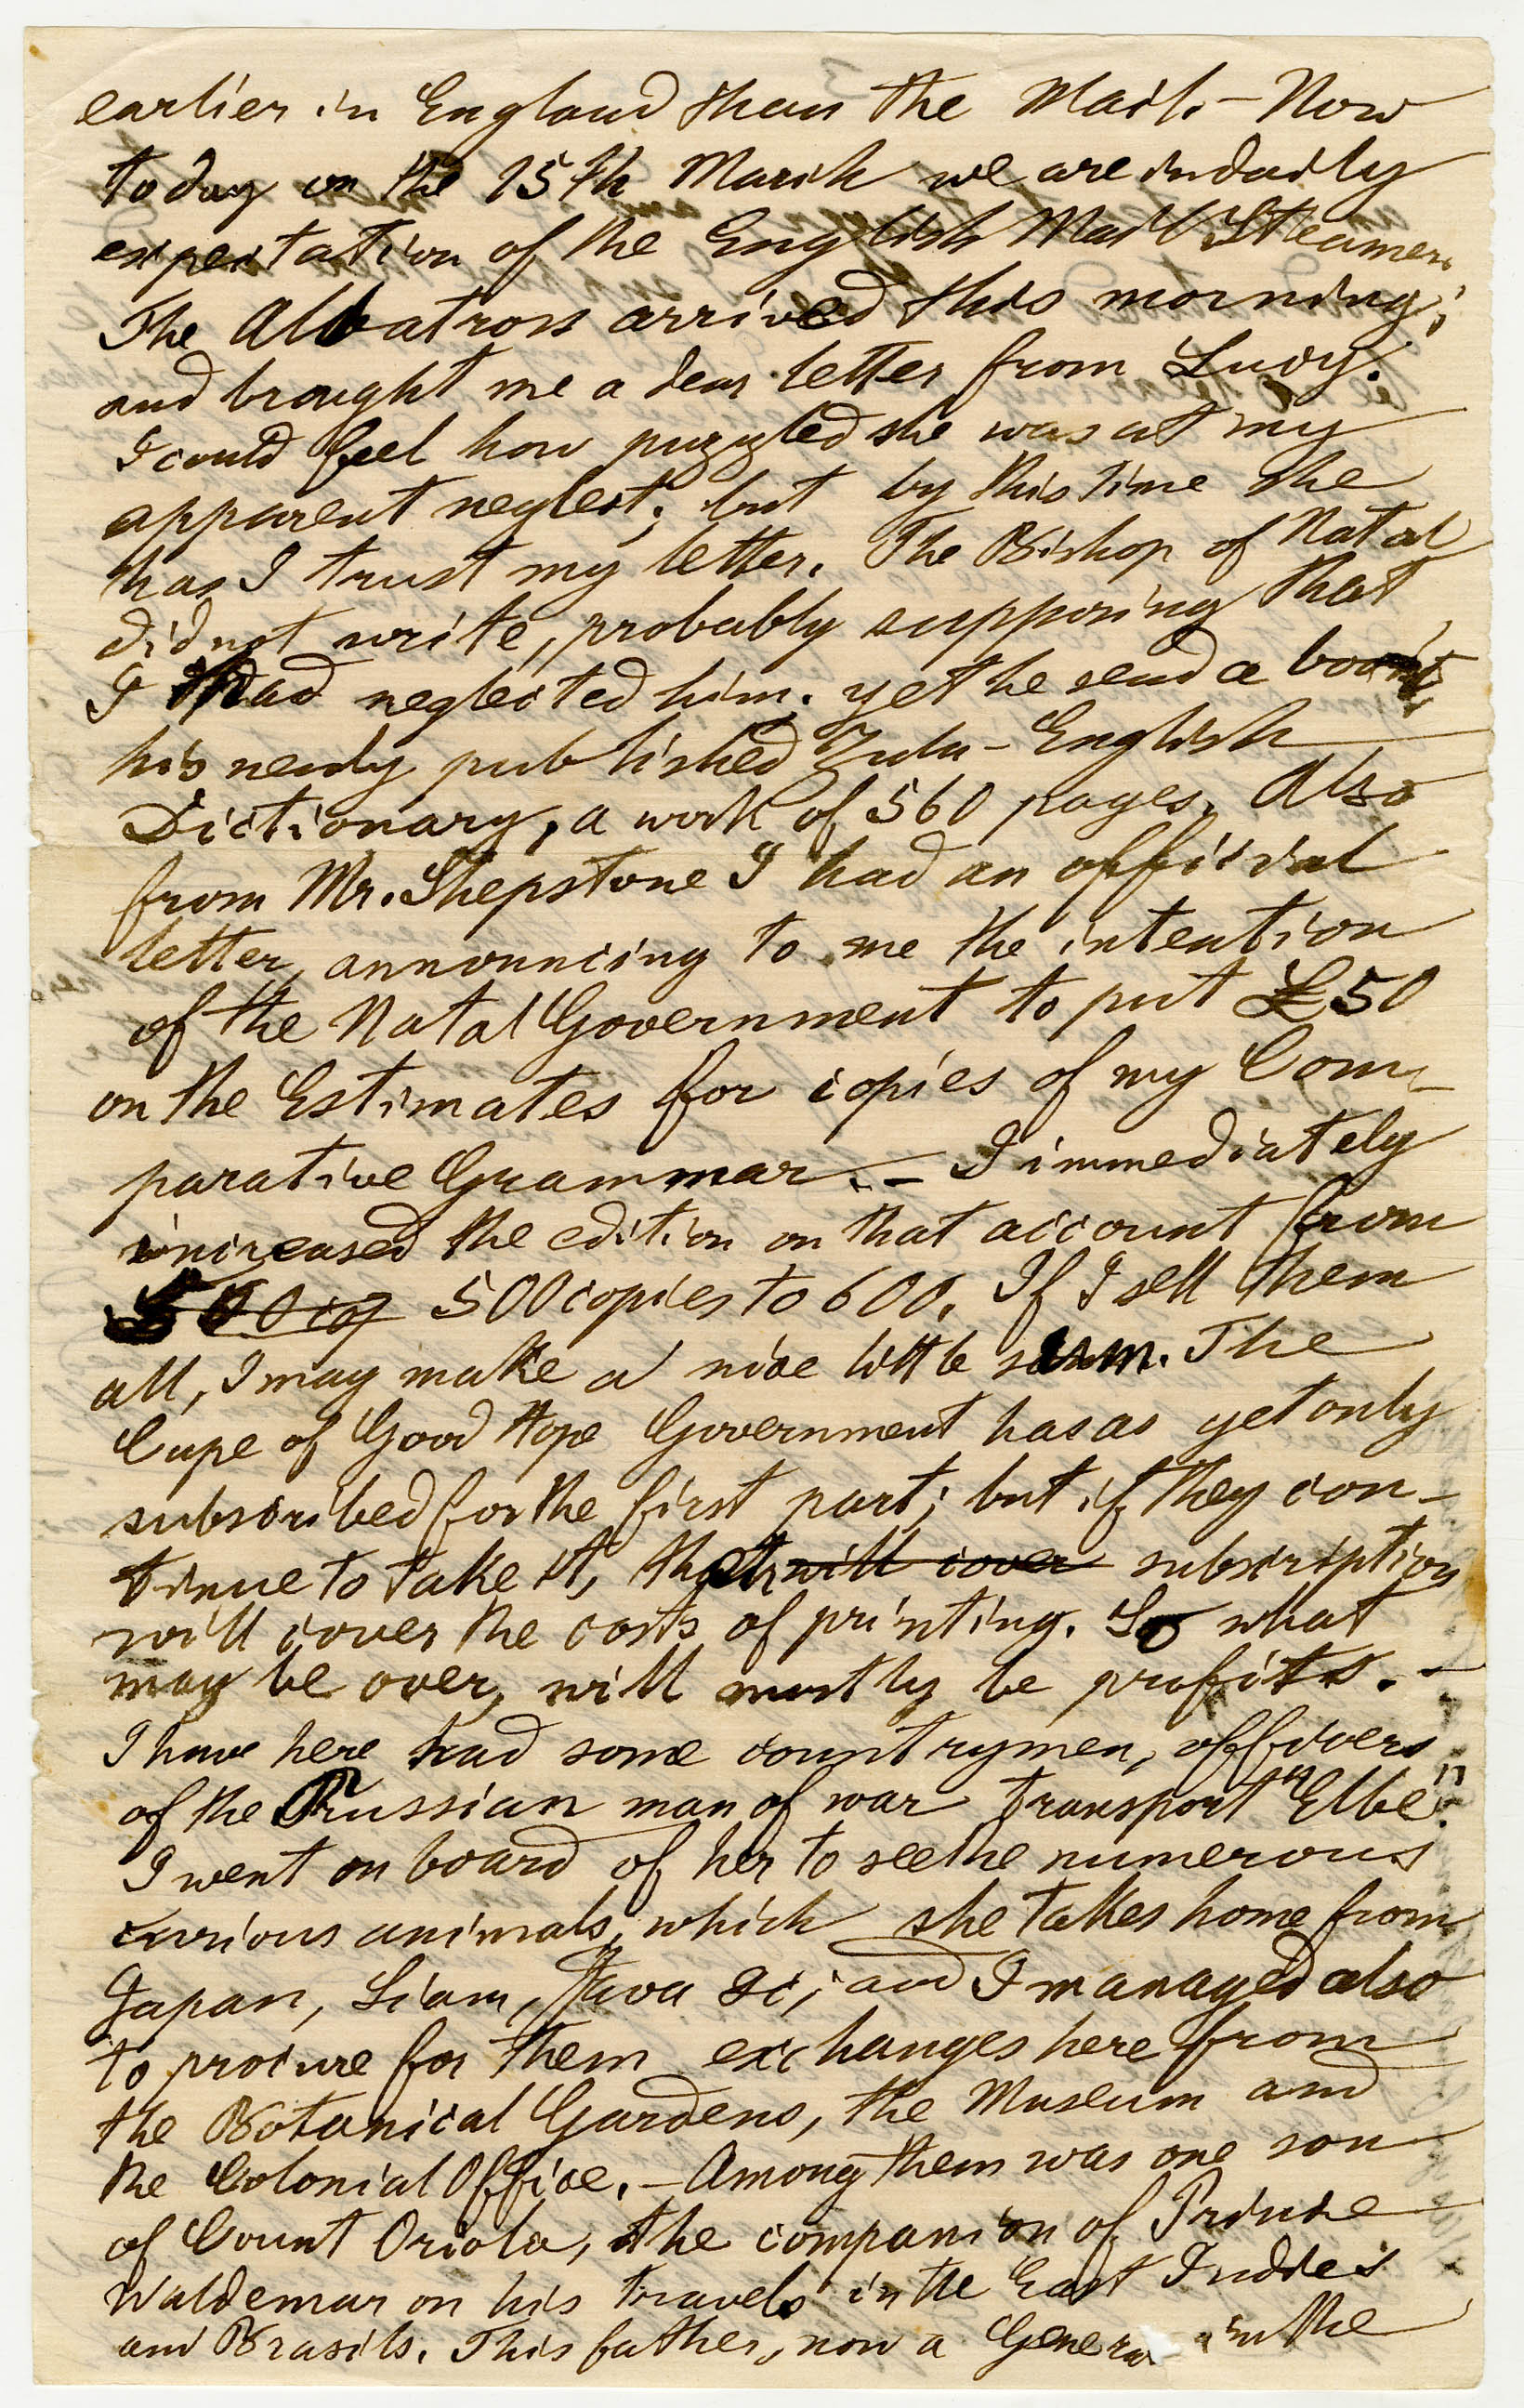 earlier in England than the Mail. – Now
today on the 15th March we are in daily
expectation of the English Mail Steamer.
The Albatross arrived this morning,
and brought me a dear letter from Lucy.
I could feel how puzzled she was at my
apparent neglect; but by this time she
has I trust my letter. The Bishop of Natal
did not write, probably supposing that
I had neglected him. yet he send a
his newly published Zulu-English
Dictionary, a work of 560 pages. Also
from Mr. Shepstone I had an official
letter, announcing to me the intention
of the Natal Government to put £50
on the Estimates for copies of my Com-
parative Grammar. – I immediately
increased the edition on that account from
500 cop 500 copies to 600. If I sell them
all, I may make a nice little sum. The
Cape of Good Hope Government has as yet only
subscribed for the first part; but if they con-
tinue to take it, their will cover subscription
will cover the costs of printing. So what
may be over, will mostly be profits. –
I have here had some countrymen, officers
of the Prussian man of war transport "Elbe".
I went on board of her to see the numerous
curious animals, which she takes home from
Japan, Siam, Java &c; and I managed also
to procure for them exchanges here from
the Botanical Gardens, the Museum and
the Colonial Office. – Among them was one son
of Count Oriola, the companion of Prince
Waldemar on his travels in the East Indies
and Brasils. This father, now a General in the